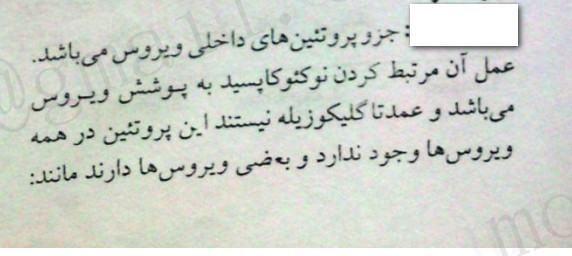 : جزو پروتئین‌های داخلی ویروس می‌باشد.
عمل آن مرتبط کردن نوکئوکاپسید به پوشش ویروس
می‌باشد و عمدتا گلیکوزیله نیستند این پروتئین در همه
ویروس‌ها وجود ندارد و بعضی ویروس‌ها دارند مانند:
@gmail.
mo